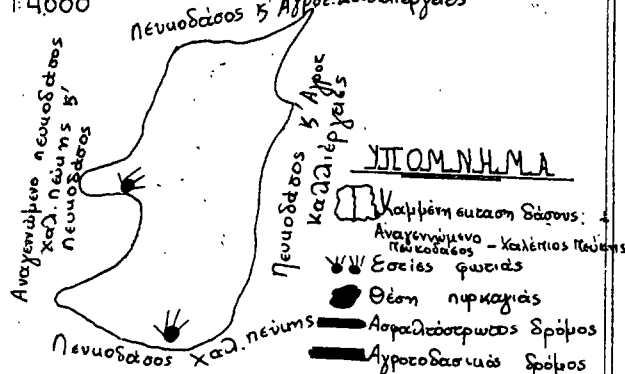 1:4000
Πευκοδάσος ϗ Αγροτ. Καλλιέργειες
Αναγεννώμενο πευκοδάσος
χαλ. πεύκης ϗ'
πευκοδάσος
Πευκοδάσος ϗ' Αγροτ
καλλιέργειες
Πευκοδάσος χαλ. πεύκης
ΥΠΟΜΝΗΜΑ
Καμμένη έκταση δάσους:
Αναγεννώμενο
Πευκοδάσος - Χαλέπιος Πεύκης
Εστίες φωτιάς
Θέση πυρκαγιάς
Ασφαλτόστρωτος δρόμος
Αγροτοδασικός δρόμος